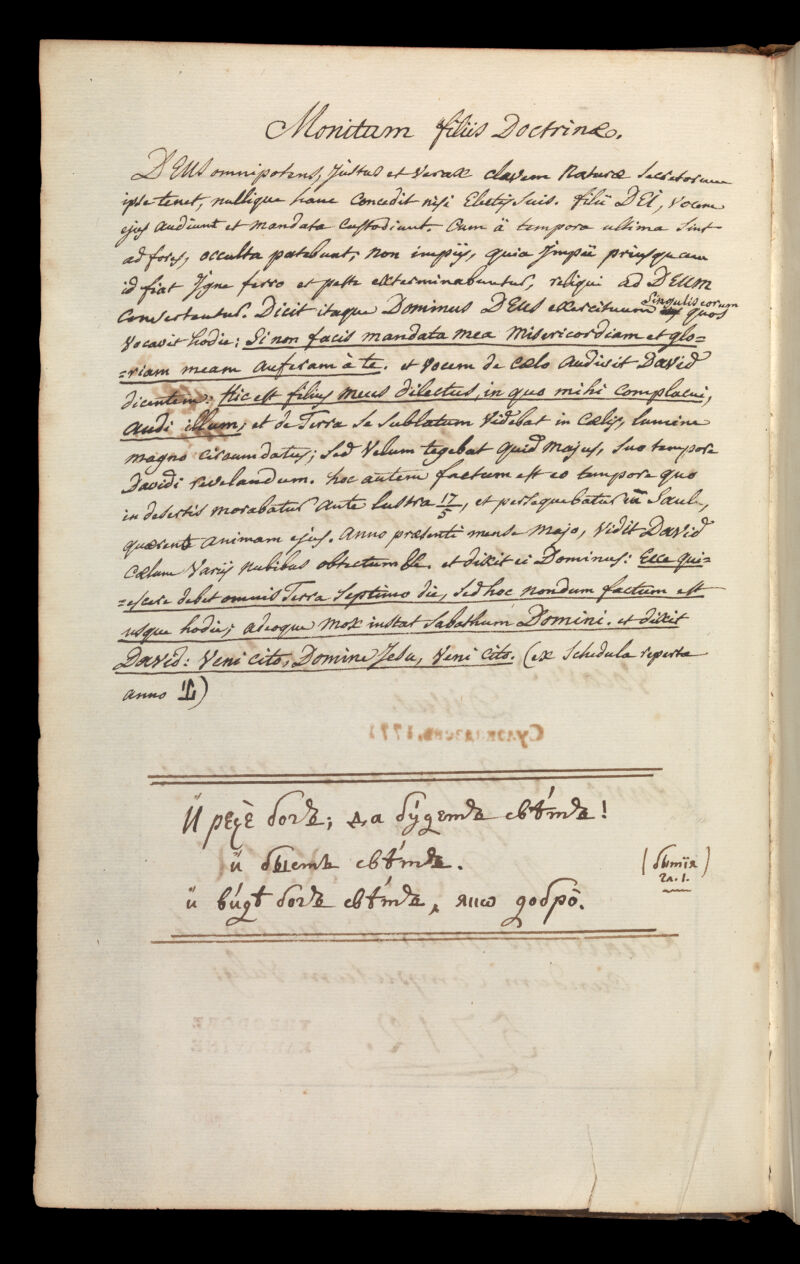 Monitum filiis Doctrinæ.
DEUS omnipotens, Justus et verax clavem Naturæ Secretorum
ipse tenet, nullique hanc concedit nisi Electis suis. filii DEI, vocem
ejus audiunt et mandata custodiunt. Cum ä tempora ultima sint
ad fores, occulta patebunt, non impiis, quia Impii priusquam
id fiat Igne ferro et peste exterminabuntur, reliqui ad DEUM
convertentur. Dicit itaque Dominus DEUS exercituum singulis eorum quos
vocavit hodie: Si non facis mandata mea Misericordiam et glo=
=riam meam auferam à te. et vocem de cælo audivit David
dicentem: Hic est filius meus dilectus, in quo mihi complacui,
audi illum, et de Terra se sublatum videbat in cælis, lumine
magno circumdatus; sed velum tegebat quid majus, suo tempore
Davidi revelandum. hoc autem factum est eo tempore quo
in desertis morabatur ante lustra 17/5, et persequebatur Saule,
quærente animam ejus. Anno præsenti mense Majo, vidit David
Cælum variis nubibus obtectum et dixit ei Dominus: Ecce qui=
=escere debet omnis Terra Septimo die, sed hoc nondum factum est
usque hodie; adeoque mox instat Sabathum Domini. et dixit
David: Veni cito, Domine Jesu, veni cito. (ex Schedula reperta
anno )
И҆ речѐ богъ; да бу́детъ свѣ́тъ!
и҆ бысть свѣ́тъ.
и҆ ви́дѣ богъ свѣ́тъ, якѡ добро̀.
(бытїя
гл. 1.)